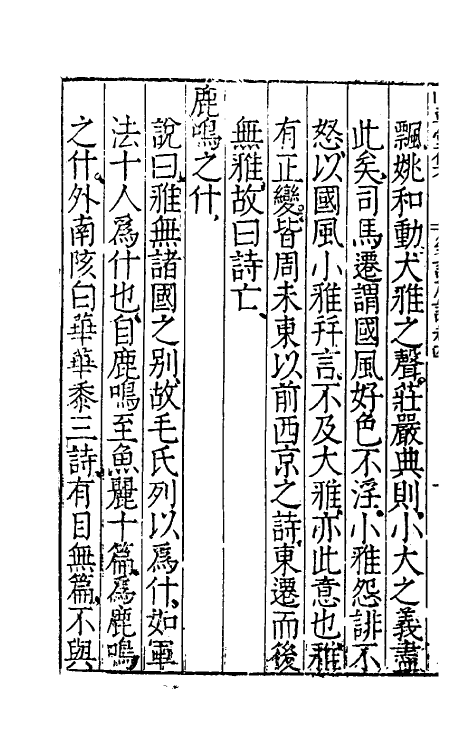 飄姚和動大雅之聲莊嚴典則小大之義盡
此矣司馬遷謂國風好色不淫小雅怨誹不
怒以國風小雅幷言不及大雅亦此意也雅
有正變皆周未東以前西京之詩東遷而後
無雅故曰詩亡
鹿鳴之什
說曰雅無諸國之别故毛氏列以爲什如軍
法十人爲什也自鹿鳴至魚麗十篇爲鹿鳴
之什外南陔白華華黍三詩有目無篇不與